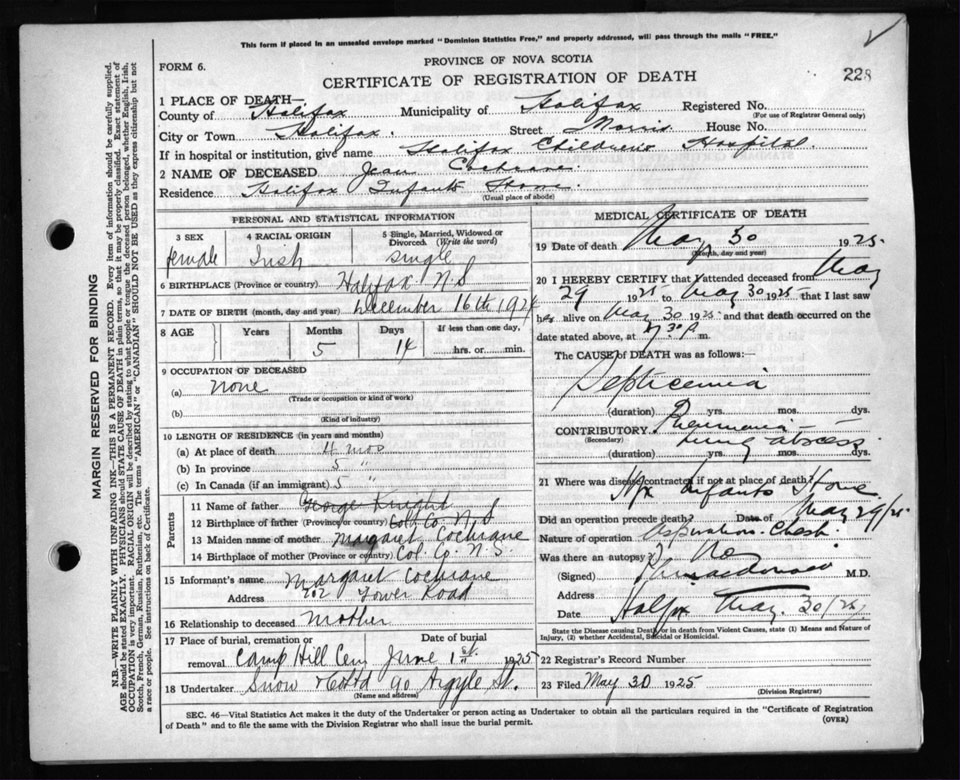 This form if placed in an unsealed envelope marked "Dominion Statistics Free," and properly addressed, will pass through the mails "FREE."
FORM 6.
PROVINCE OF NOVA SCOTIA
CERTIFICATE OF REGISTRATION OF DEATH
228
1 PLACE OF DEATH—
County of Halifax Municipality of Halifax Registered No.
(For use of Registrar General only)
City or Town Halifax. Street Morris House No.
If in hospital or institution, give name Halifax Children's Hospital.
2 NAME OF DECEASED Jean Cochrane
Residence Halifax Infants Home.
(Usual place of abode)
PERSONAL AND STATISTICAL INFORMATION
3 SEX 4 RACIAL ORIGIN 5 Single, Married, Widowed or Divorced. (Write the word)
female Irish single
6 BIRTHPLACE (Province or country) Halifax N.S
7 DATE OF BIRTH (month, day and year) December 16th 1924
8 AGE Years Months Days If less than one day,
5 14 hrs. or min.
9 OCCUPATION OF DECEASED
(a) none
(Trade or occupation or kind of work)
(b)
(Kind of industry)
10 LENGTH OF RESIDENCE (in years and months)
(a) At place of death 4 mos
(b) In province 5 "
(c) In Canada (if an immigrant) 5 "
Parents
11 Name of father George Knight
12 Birthplace of father (Province or country) Col. Co. N.S
13 Maiden name of mother Margaret Cochrane
14 Birthplace of mother (Province or country) Col. Co. N.S.
15 Informant's name Margaret Cochrane
Address Tower Road
16 Relationship to deceased Mother
17 Place of burial, cremation or Date of burial
removal Camp Hill Cem June 1st 1925
18 Undertaker Snow & Co Ltd 90 Argyle St.
(Name and address)
MEDICAL CERTIFICATE OF DEATH
19 Date of death May 30 1925
(Month, day and year)
20 I HEREBY CERTIFY that I attended deceased from May
29 1925 to May 30 1925 that I last saw
her alive on May 30 1925 and that death occurred on the
date stated above, at 7.30 P m.
The CAUSE OF DEATH was as follows:—
Septicemia
(duration) yrs. mos. dys.
CONTRIBUTORY Pneumonia
(Secondary) lung abscess
(duration) yrs. mos. dys.
21 Where was disease contracted if not at place of death?
Hfx Infants Home.
Did an operation precede death? Date of May 29/25
Nature of operation Aspiration Chest
Was there an autopsy? No
(Signed) Macdonald M.D.
Address
Date Halfx May. 30/25
State the Disease causing Death, or in death from Violent Causes, state (1) Means and Nature of
Injury, (2) whether Accidental, Suicidal or Homicidal.
22 Registrar's Record Number
23 Filed May 30 1925
(Division Registrar)
SEC. 46—Vital Statistics Act makes it the duty of the Undertaker or person acting as Undertaker to obtain all the particulars required in the "Certificate of Registration
of Death" and to file the same with the Division Registrar who shall issue the burial permit. (OVER)
MARGIN RESERVED FOR BINDING
N.B.—WRITE PLAINLY WITH UNFADING INK—THIS IS A PERMANENT RECORD. Every item of information should be carefully supplied.
AGE should be stated EXACTLY. PHYSICIANS should STATE CAUSE OF DEATH in plain terms, so that it may be properly classified. Exact statement of
OCCUPATION is very important. RACIAL ORIGIN will be described by stating to what people or tongue the deceased person belonged, whether English, Irish,
Scotch, French, German, Russian, Ruthenian, etc. The terms "AMERICAN" or "CANADIAN" SHOULD NOT BE USED as they express citizenship but not
a race or people. See instructions on back of Certificate.